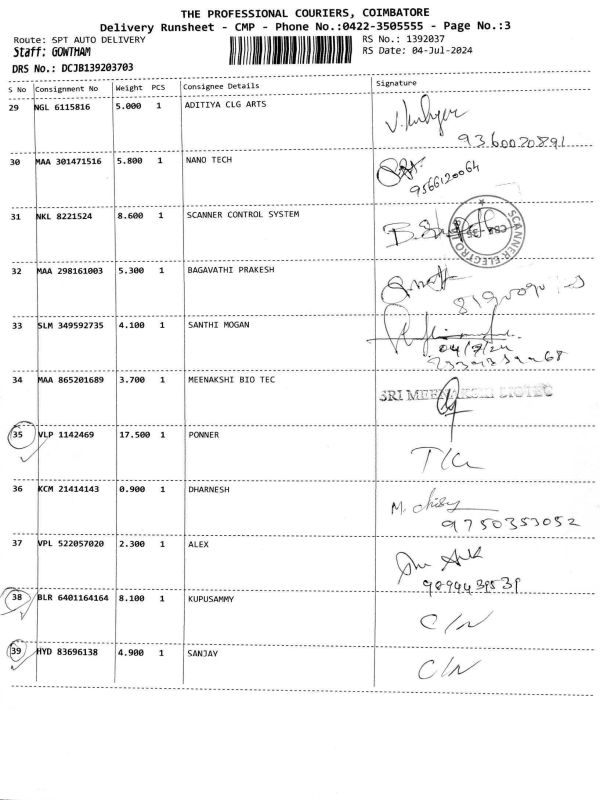 THE PROFESSIONAL COURIERS, COIMBATORE
Delivery Runsheet - CMP - Phone No.:0422-3505555 - Page No.:3
Route: SPT AUTO DELIVERY RS No.: 1392037
Staff: GOWTHAM RS Date: 04-Jul-2024
DRS No.: DCJB139203703
S No Consignment No Weight PCS Consignee Details Signature
29 NGL 6115816 5.000 1 ADITIYA CLG ARTS
9360020891
30 MAA 301471516 5.800 1 NANO TECH
9566120064
31 NKL 8221524 8.600 1 SCANNER CONTROL SYSTEM
SCANNER ELECTRO
CBE-35
32 MAA 298161003 5.300 1 BAGAVATHI PRAKESH
33 SLM 349592735 4.100 1 SANTHI MOGAN
04/7/24
34 MAA 865201689 3.700 1 MEENAKSHI BIO TEC
SRI MEENAKSHI BIOTEC
35 VLP 1142469 17.500 1 PONNER
36 KCM 21414143 0.900 1 DHARNESH
9750353052
37 VPL 522057020 2.300 1 ALEX
9894439539
38 BLR 6401164164 8.100 1 KUPUSAMMY
C/N
39 HYD 83696138 4.900 1 SANJAY
C/N